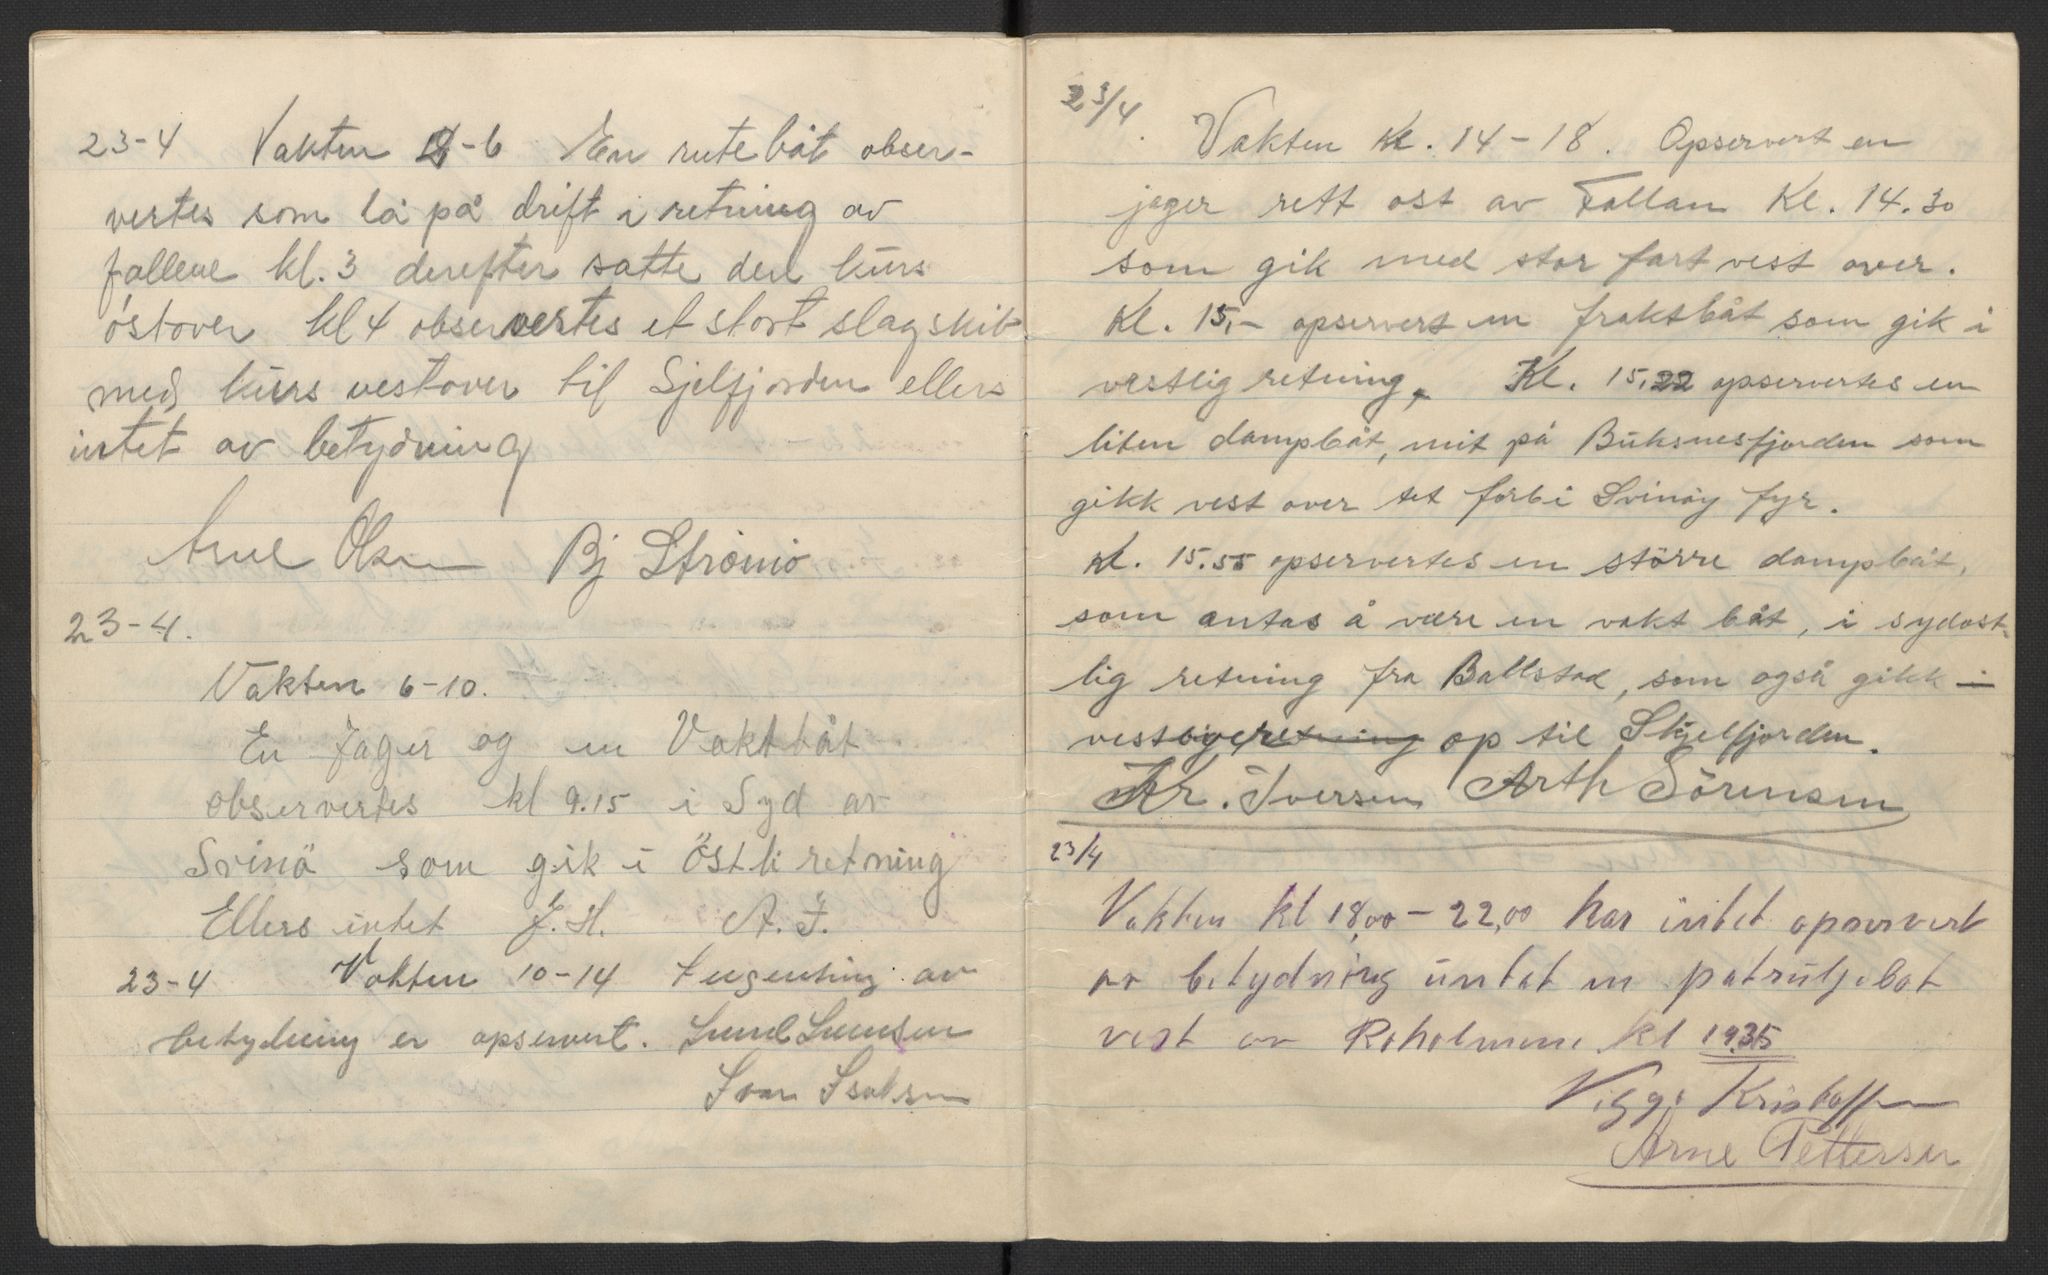 23-4 Vakten -6 En rutebåt obser-
vertes som lå på drift i retning av
fallene kl. 3 derefter satte den kurs
östover kl 4 observertes et stort slagskib
med kurs vestover til Sjelfjorden ellers
intet av betydning
Arne Olsen Bj Strömö
23-4.
Vakten 6-10.
En Jager og en Vaktbåt
observertes kl 9.15 i Syd av
Svinö som gik i Östli retning
Ellers intet J. H. A. J.
23-4 Vakten 10-14 Ingenting av
betydning er opservert.
Ivar Isaksen
23/4
Vakten Kl. 14-18. Opservert en
jager rett ost av Fallan Kl. 14.30
som gik med stor fart vest over.
Kl. 15,- opservert en fraktbåt som gik i
vestlig retning, Kl. 15,22 opservertes en
liten dampbåt, mit på Buksnesfjorden som
gikk vest over tet forbi Svinöy fyr.
Kl. 15.55 opservertes en större dampbåt,
som antas å være en vakt båt, i sydost-
lig retning fra Ballstad, som også gikk i
vestlige retning op til Skjelfjorden.
Kr. Iversen Arth Sörensen
23/4
Vakten kl 18,00-22,00 har intet opservert
av betydning untat en patruljebåt
vest av Roholmene kl 19.35
Viggo Kristoffersen
Arne Pettersen